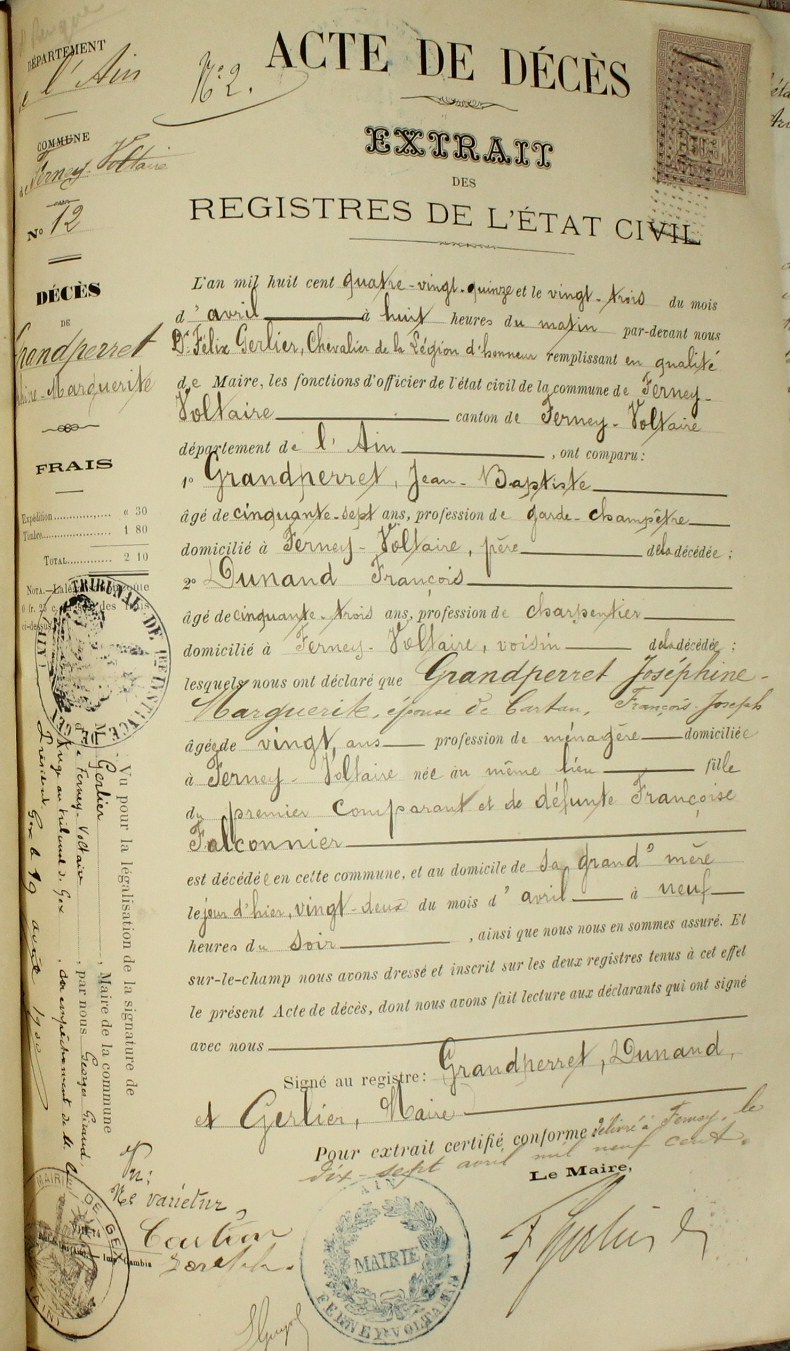 DÉPARTEMENT
de l'Ain
COMMUNE
de Ferney-Voltaire
N° 12
DÉCÈS
DE
Grandperret
-Marguerite
FRAIS
Expédition............ " 30
Timbre............ 1 80
TOTAL............ 2 10
N° 2.
ACTE DE DÉCÈS
EXTRAIT
DES
REGISTRES DE L'ÉTAT CIVIL
L'an mil huit cent quatre-vingt-quinze et le vingt-trois du mois
d'avril à huit heures du matin par-devant nous
Dr Félix Gerlier, Chevalier de la Légion d'honneur remplissant en qualité
de Maire, les fonctions d'officier de l'état civil de la commune de Ferney-
Voltaire canton de Ferney-Voltaire
département de l'Ain, ont comparu:
1° Grandperret, Jean-Baptiste
âgé de cinquante-sept ans, profession de garde-champêtre
domicilié à Ferney-Voltaire, père de la décédée;
2° Dunand François
âgé de cinquante-trois ans, profession de charpentier
domicilié à Ferney-Voltaire, voisin de la décédée;
lesquels nous ont déclaré que Grandperret Joséphine-
Marguerite, épouse de Cartan, François-Joseph
âgée de vingt ans profession de ménagère domiciliée
à Ferney-Voltaire née au même lieu fille
du premier comparant et de défunte Françoise
Falconnier
est décédée en cette commune, et au domicile de sa grand'mère
le jour d'hier, vingt-deux du mois d'avril à neuf
heures du soir, ainsi que nous nous en sommes assuré. Et
sur-le-champ nous avons dressé et inscrit sur les deux registres tenus à cet effet
le présent Acte de décès, dont nous avons fait lecture aux déclarants qui ont signé
avec nous
Signé au registre: Grandperret, Dunand,
et Gerlier, Maire
Pour extrait certifié conforme délivré à Ferney, le
dix-sept avril mil neuf cent.
Le Maire,
F Gerlier
MAIRIE
FERNEY-VOLTAIRE
AIN
TRIBUNAL DE 1re INSTANCE
Vu pour la légalisation de la signature de
Gerlier, Maire de la commune
de Ferney-Voltaire, par nous Georges
Juge au tribunal de Gex, en empêchement de M. le
Président Gex le 19 avril 1900
Vu:
Ne varietur
MAIRIE DE GEX
(AIN)